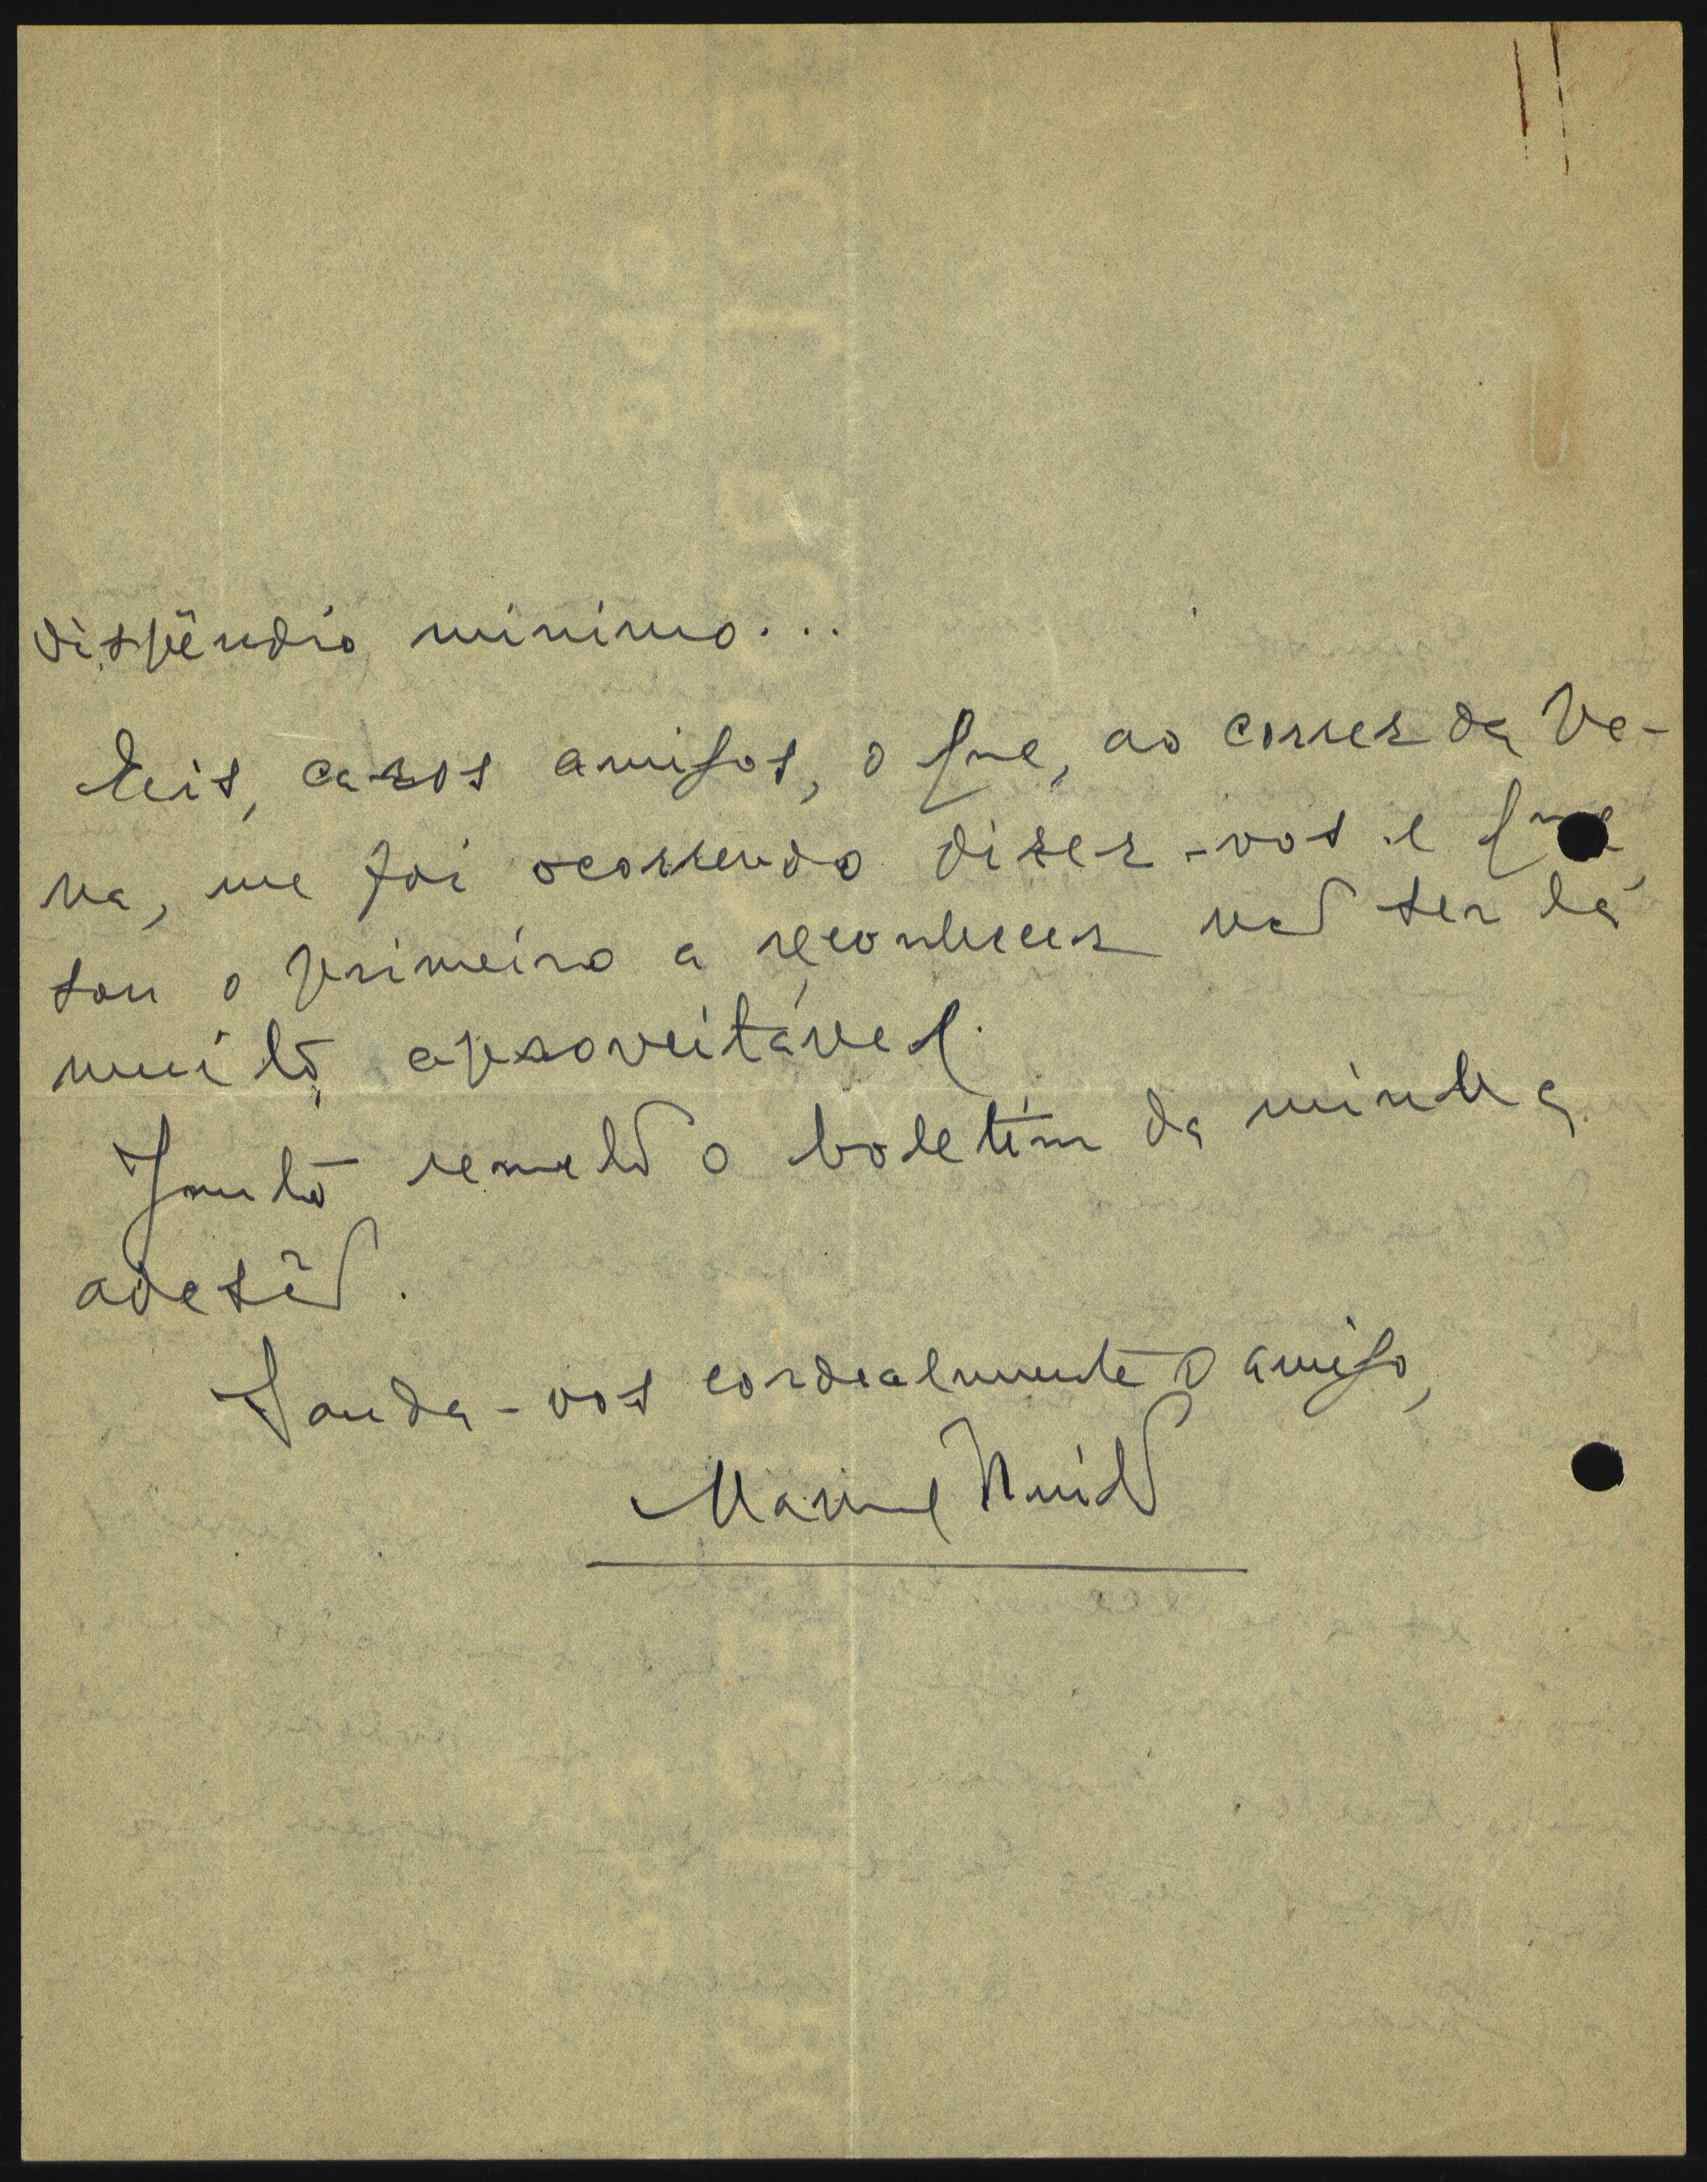 dispêndio minimo...
Eeis, caros amigos, o que, ao correr da Pe-
na, me foi ocorrendo dizer-vos e que,
sou o primeiro a reconhecer não ser lá
muito aproveitável.
Junto remeto o boletim da minha
adesão.
Sauda-vos cordealmente o amigo,
Manuel